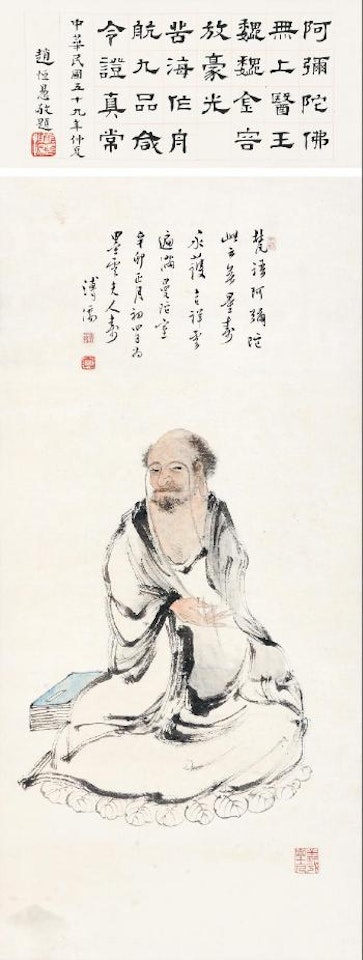 阿彌陀佛
無上醫王
巍巍金容
放豪光
苦海作舟
航九品咸
令證真常
中華民國五十九年仲夏
趙恒惖敬題
梵語阿彌陀
此云無量壽
永護吉祥雲
遍滿曼陀室
辛卯正月初四日為
墨雲夫人壽
溥儒